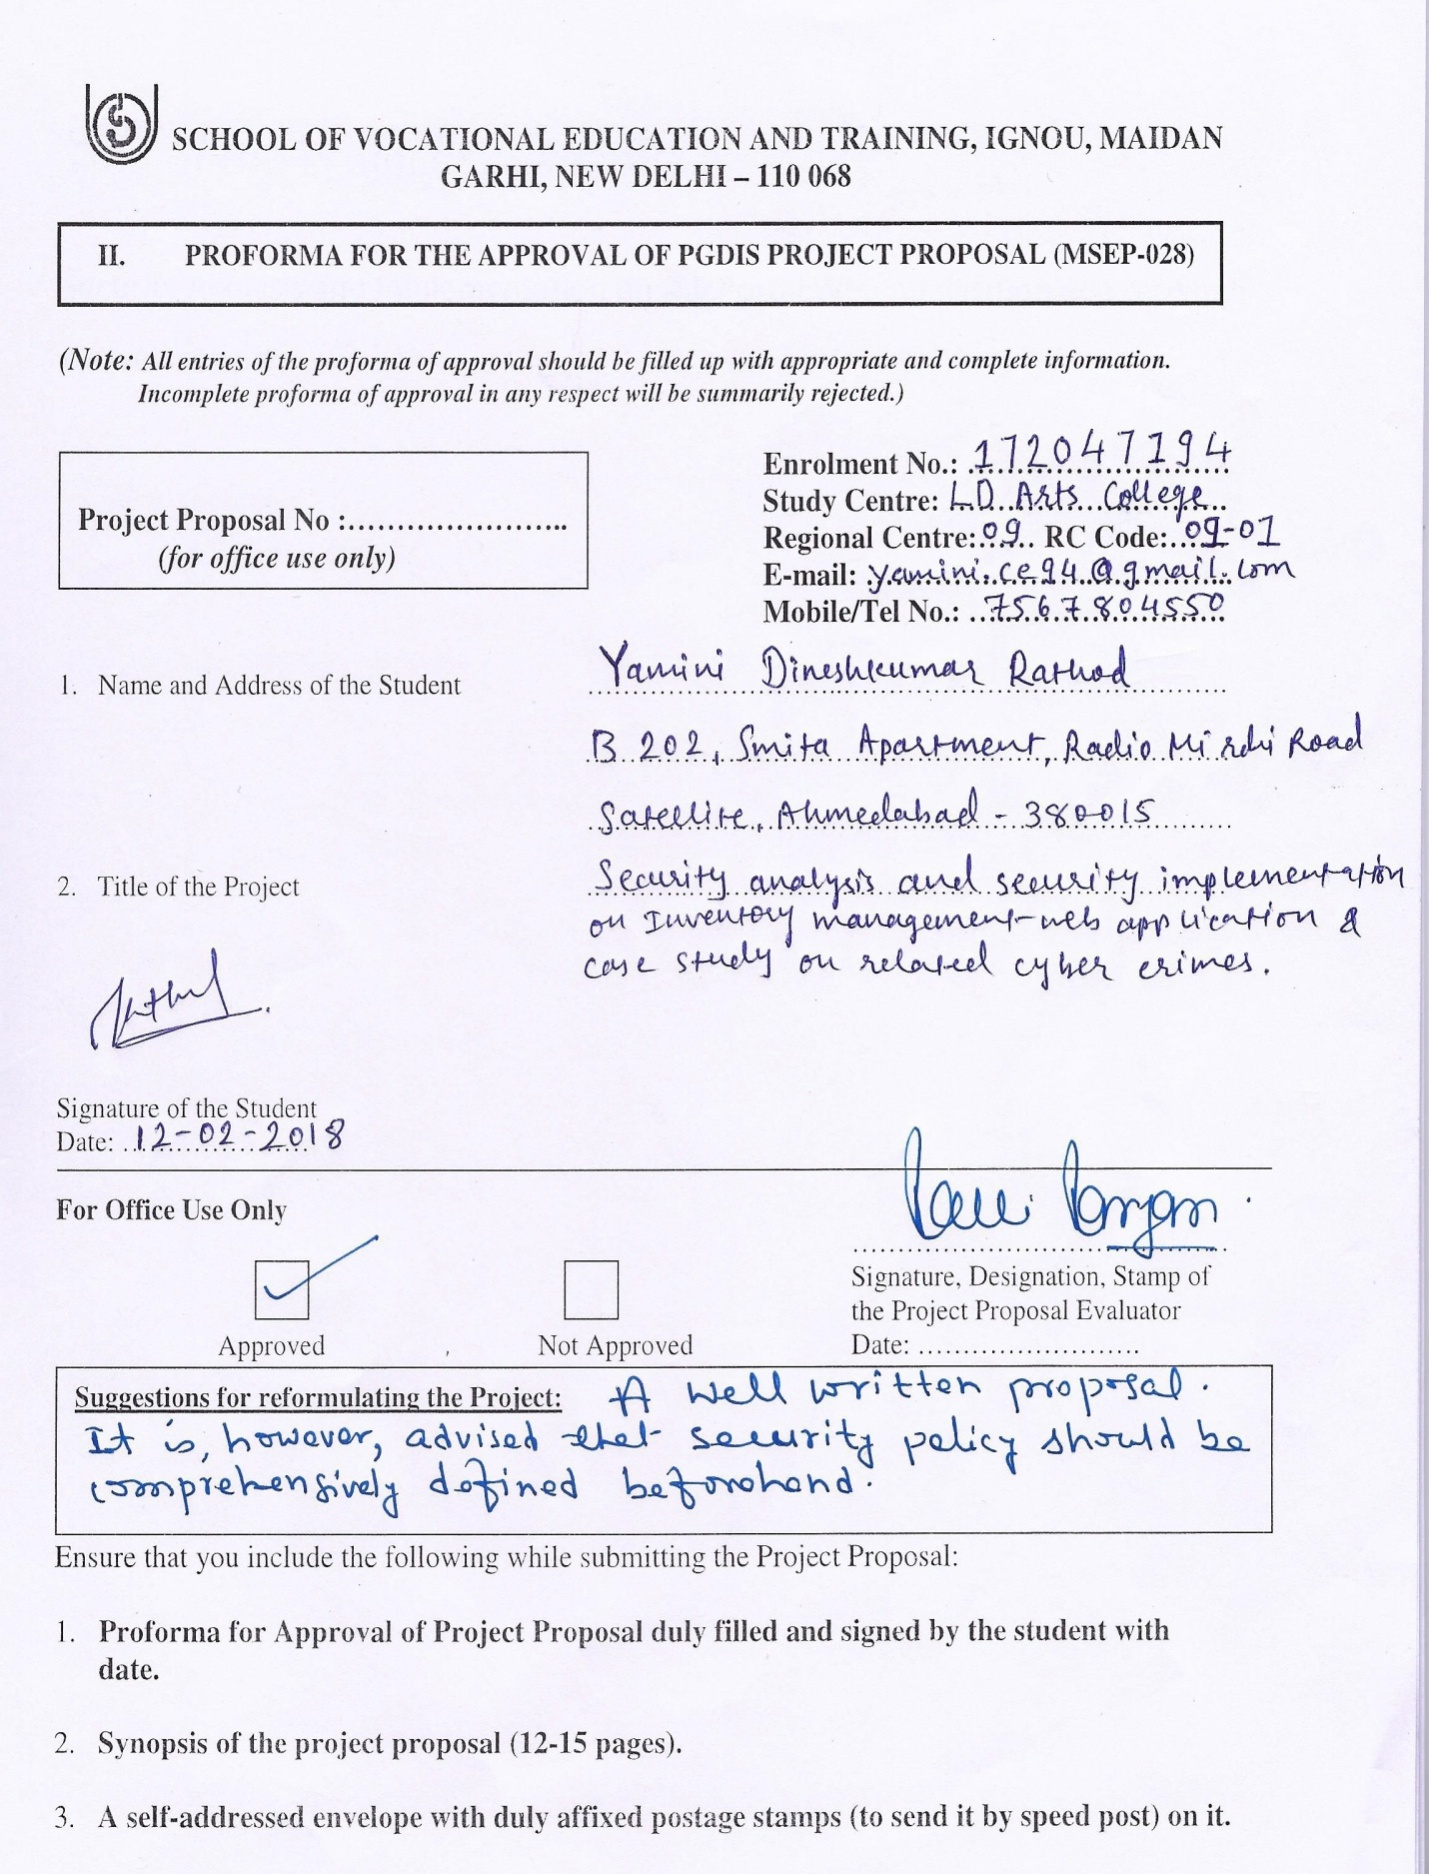 SCHOOL OF VOCATIONAL EDUCATION AND TRAINING, IGNOU, MAIDAN
GARHI, NEW DELHI – 110 068
II. PROFORMA FOR THE APPROVAL OF PGDIS PROJECT PROPOSAL (MSEP-028)
(Note: All entries of the proforma of approval should be filled up with appropriate and complete information.
Incomplete proforma of approval in any respect will be summarily rejected.)
Enrolment No.: 172047194
Study Centre: L.D. Arts College
Project Proposal No :........................
Regional Centre: 09 RC Code: 09-01
(for office use only)
E-mail: yamini.ce94@gmail.com
Mobile/Tel No.: 7567804550
1. Name and Address of the Student Yamini Dineshkumar Rathod
B 202, Smita Apartment, Radio Mirchi Road
Satellite, Ahmedabad - 380015
2. Title of the Project Security analysis and security implementation
on Inventory management web application &
case study on related cyber crimes.
Signature of the Student
Date: 12-02-2018
For Office Use Only
Signature, Designation, Stamp of
the Project Proposal Evaluator
Approved Not Approved Date: ........................
Suggestions for reformulating the Project: A well written proposal.
It is, however, advised that security policy should be
comprehensively defined beforehand.
Ensure that you include the following while submitting the Project Proposal:
1. Proforma for Approval of Project Proposal duly filled and signed by the student with
date.
2. Synopsis of the project proposal (12-15 pages).
3. A self-addressed envelope with duly affixed postage stamps (to send it by speed post) on it.